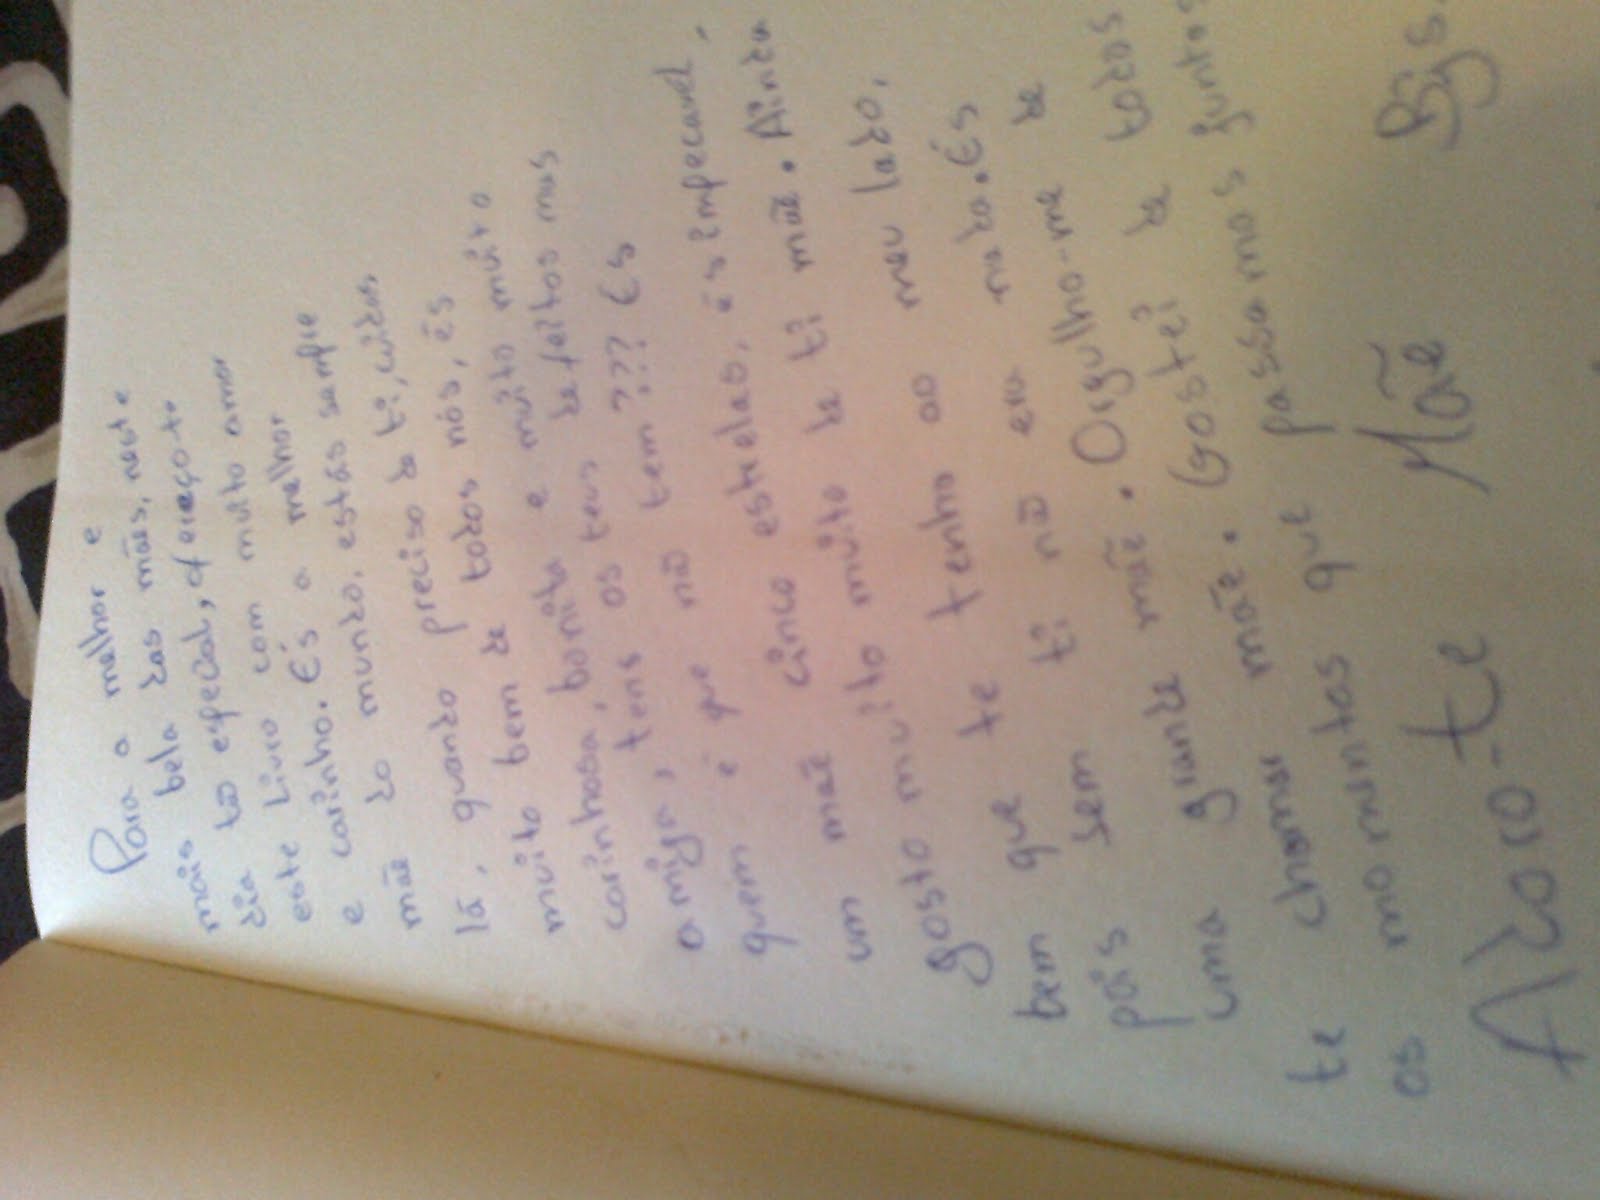 Para a melhor e
mais bela das mães, neste
dia tão especial, ofereço-te
este livro com muito amor
e carinho. És a melhor
mãe do mundo, estás sempre
lá, quando preciso de ti, cuidas
muito bem de todos nós, és
carinhosa, bonita e muito muito
amiga, tens os teus defeitos mas
quem é que não tem??? És
um mãe cinco estrelas, és impecavel,
gosto muito muito de ti mãe. Ainda
bem que te tenho ao meu lado,
pois sem ti não era nada. És
uma grande mãe. Orgulho-me de
te chamar mãe. Gostei de todos
os momentos que passamos juntos
Adoro-te Mãe Bjs.